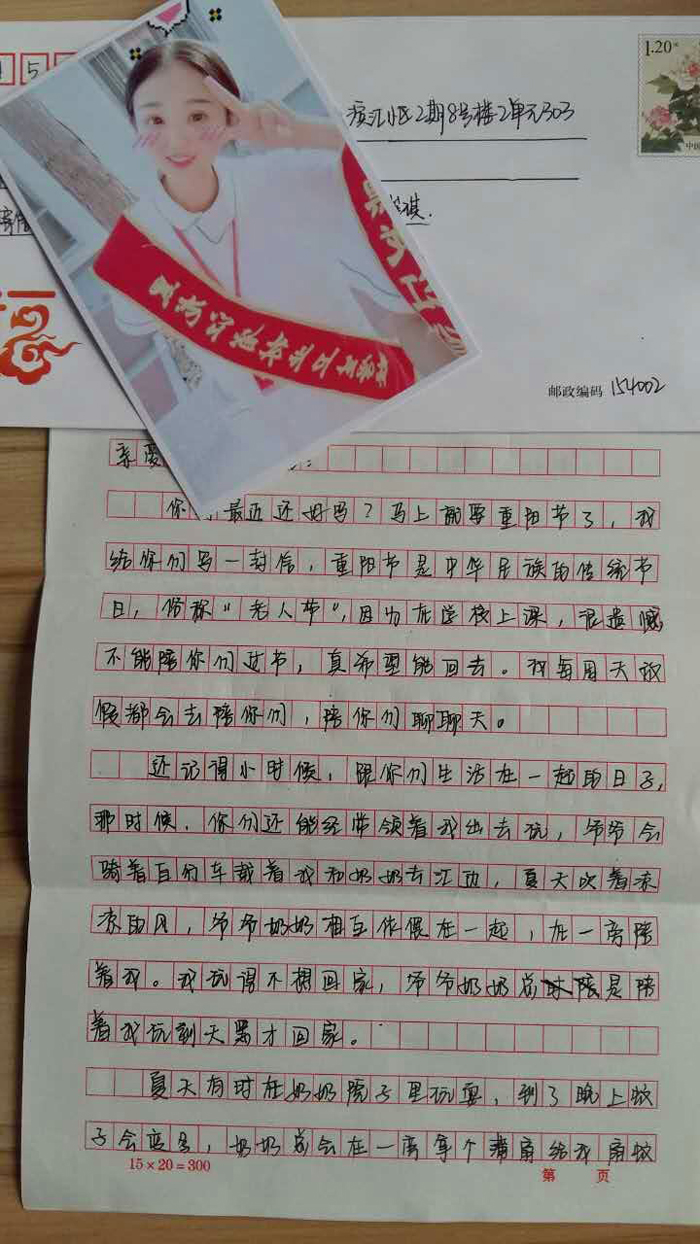 1.20元
滨江小区2期8号楼2单元303
琪.
邮政编码 154002
亲爱
你 最近还好吗？马上就要重阳节了，我
给你们写一封信，重阳节是中华民族的传统节
日，俗称“老人节”，因为在学校上课，很遗憾
不能陪你们过节，真希望能回去。我每周天放
假都会去陪你们，陪你们聊聊天。
还记得小时候，跟你们生活在一起的日子，
那时候．你们还能经常领着我出去玩，爷爷会
骑着自行车载着我和奶奶去江边，夏天吹着凉
凉的风，爷爷奶奶相互依偎在一起，在一旁陪
着我。我玩得不想回家，爷爷奶奶总是陪
着我玩到天黑才回家。
夏天有时在奶奶院子里玩耍，到了晚上蚊
子会变多，奶奶总会在一旁拿个蒲扇给我扇蚊
15×20=300
第 页